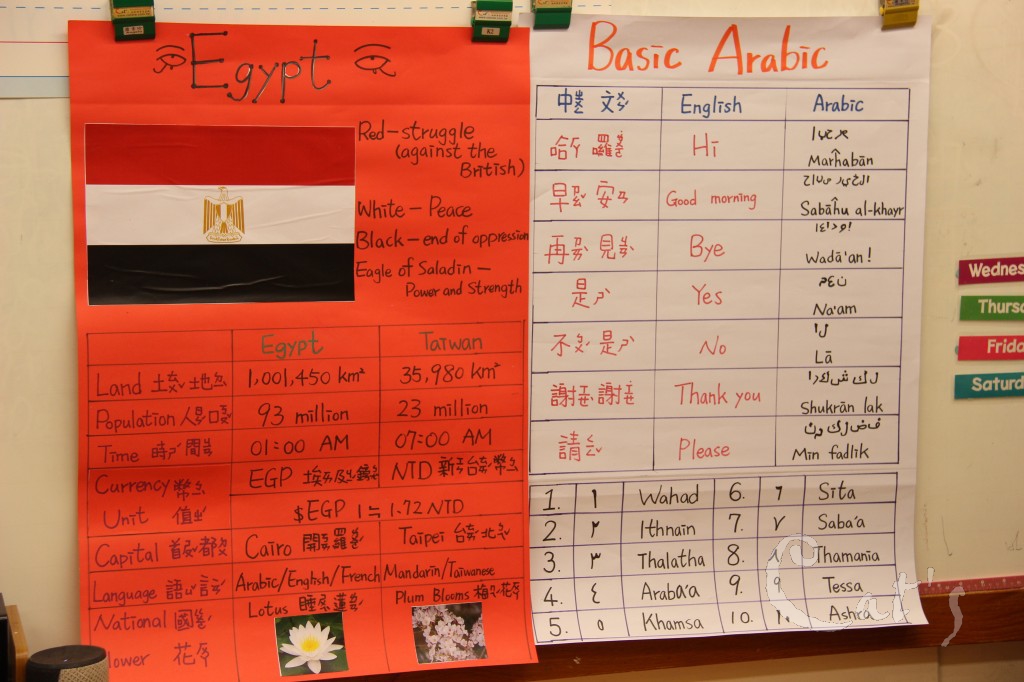 Egypt
Red–struggle
(against the
British)
White – Peace
Black–end of oppression
Eagle of Saladin –
Power and Strength
Egypt Taiwan
Land 土ㄊㄨˇ地ㄉㄧˋ 1,001,450 km² 35,980 km²
Population 人ㄖㄣˊ口ㄎㄡˇ 93 million 23 million
Time 時ㄕˊ間ㄐㄧㄢ 01:00 AM 07:00 AM
Currency 幣ㄅㄧˋ EGP 埃及鎊 NTD 新台幣
Unit 值ㄓˊ $EGP 1 ≒ 1.72 NTD
Capital 首都 Cairo 開羅 Taipei 台北
Language 語言 Arabic/English/French Mandarin/Taiwanese
National 國 Lotus 睡蓮 Plum Blooms 梅花
lower 花
Basic Arabic
中文 English Arabic
哈囉 Hi
Marĥabān
早安 Good morning
Sabāĥu al-khayr
再見 Bye
Wadā'an!
是 Yes ن ع م
Na'am
不是 No
Lā
謝謝 Thank you
Shukrān lak
請 Please
Min fadlik
1. ١ Wahad 6. ٦ Sita
2. ٢ Ithnain 7. ٧ Saba'a
3. ٣ Thalatha 8. ٨ Thamania
4. ٤ Araba'a 9. ٩ Tessa
5. ٥ Khamsa 10. Ashra
Wednes
Thursd
Frida
Saturd
Cat's